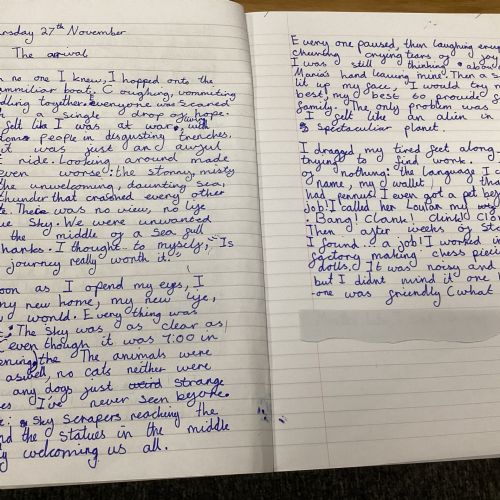 rsday 27th November
The arrival
no one I knew, I hopped onto the
ammiliar boat. Coughing, vommiting
dling together. everyone was scared
a single drop of hope.
felt like I was at war, with
people in disgusting trenches.
it was just an awful
ride. Looking around made
even worse: the stormy, misty
the unwelcoming, daunting sea,
thunder that crashed every other
There was no view, no life
ue sky. We were unwanted
the middle of a sea full
hanks. I thought to myself, "Is
journey really worth it."
oon as I opend my eyes, I
my new home, my new life,
world. Every thing was
The sky was as clear as
even though it was 7:00 in
ening. the The animals were
aswell, no cats neither were
any dogs just weird strange
I've never seen before.
sky scrapers reaching the
nd the statues in the middle
welcoming us all.
Every one paused, then laughing
crying tears of
I was still thinking
Maria's hand leaving mine. Then a
lit up my face, I would try
best, my best to proud
family. The only problem was
I felt like an alien in
spectacular planet.
I dragged my tired feet along
trying to find work.
of nothing: the language I
name, my wallet
had pennus I even got a pet
job! I called her
Bang! Clank! Clink!
Then after weeks of
I found a job! I worked in
factory making chess
dolls. It was noisy and
but I didnt mind it one
one was friendly (what